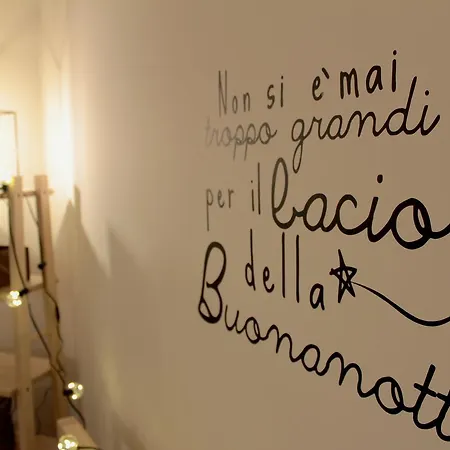 Non si è mai
troppo grandi
per il bacio
della
Buonanott